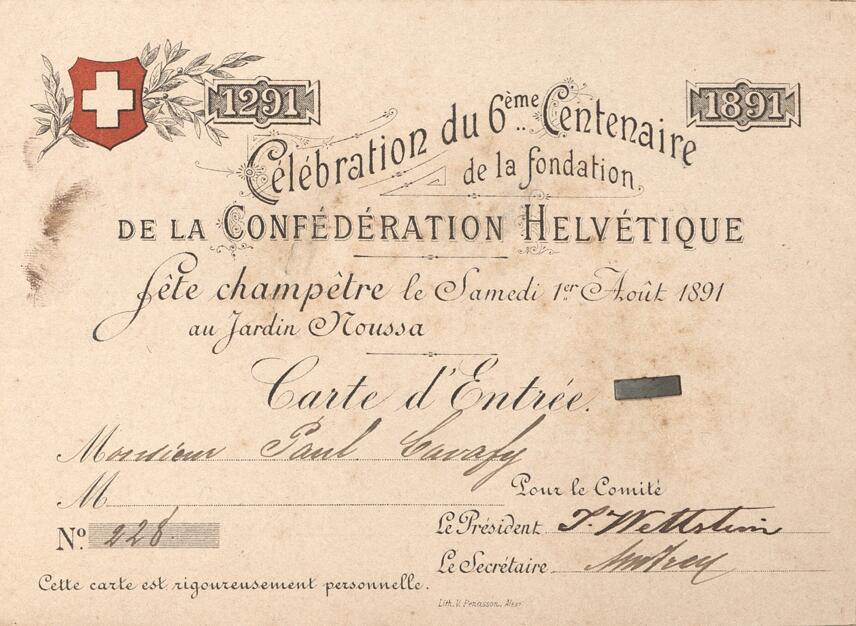 1291
1891
Célébration du 6ème Centenaire
de la fondation
DE LA CONFÉDÉRATION HELVÉTIQUE
fête champêtre le Samedi 1er Août 1891
au Jardin Noussa
Carte d'Entrée.
Monsieur Paul Cavafy
M
Pour le Comité
No. 228.
Le Président J. Wettstein
Le Secrétaire
Cette carte est rigoureusement personnelle.
Lith. V. Penasson, Alex.